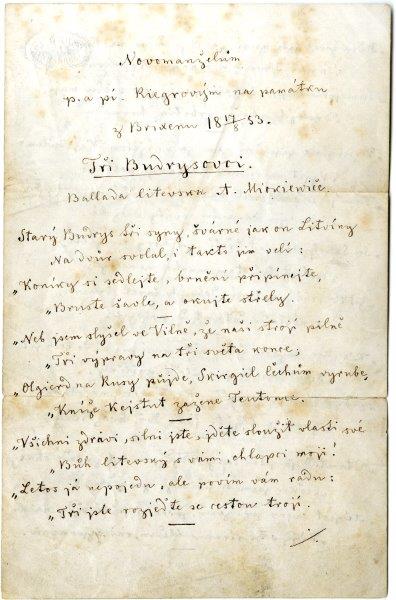 Novomanželům
p. a pí. Riegrovým na památku
z Brixenu 18 17/8 53.
Tři Budrysovci.
Ballada litevska A. Mickiewiče.
Starý Budrys tři syny, švárné jak on Litvíny
Na dvůr svolal, i takto jim velí:
„Koníky si sedlejte, brnění připínejte,
„Bruste šavle, a okujte střely.
„Neb jsem slyšel ve Vilně, že naši strojí pilně
„Tři výpravy na tři světa konce;
„Olgierd na Rusy půjde, Skirgiel Lechům vyrube,
„Kníže Kejstut zažene Teutonce.
„Všichni zdrávi, silni jste, jděte sloužit vlasti své
„Bůh litevský s vámi, chlapci moji!
„Letos já nepojedu, ale povím vám radu:
„Tři jste rozjeďte se cestou trojí.